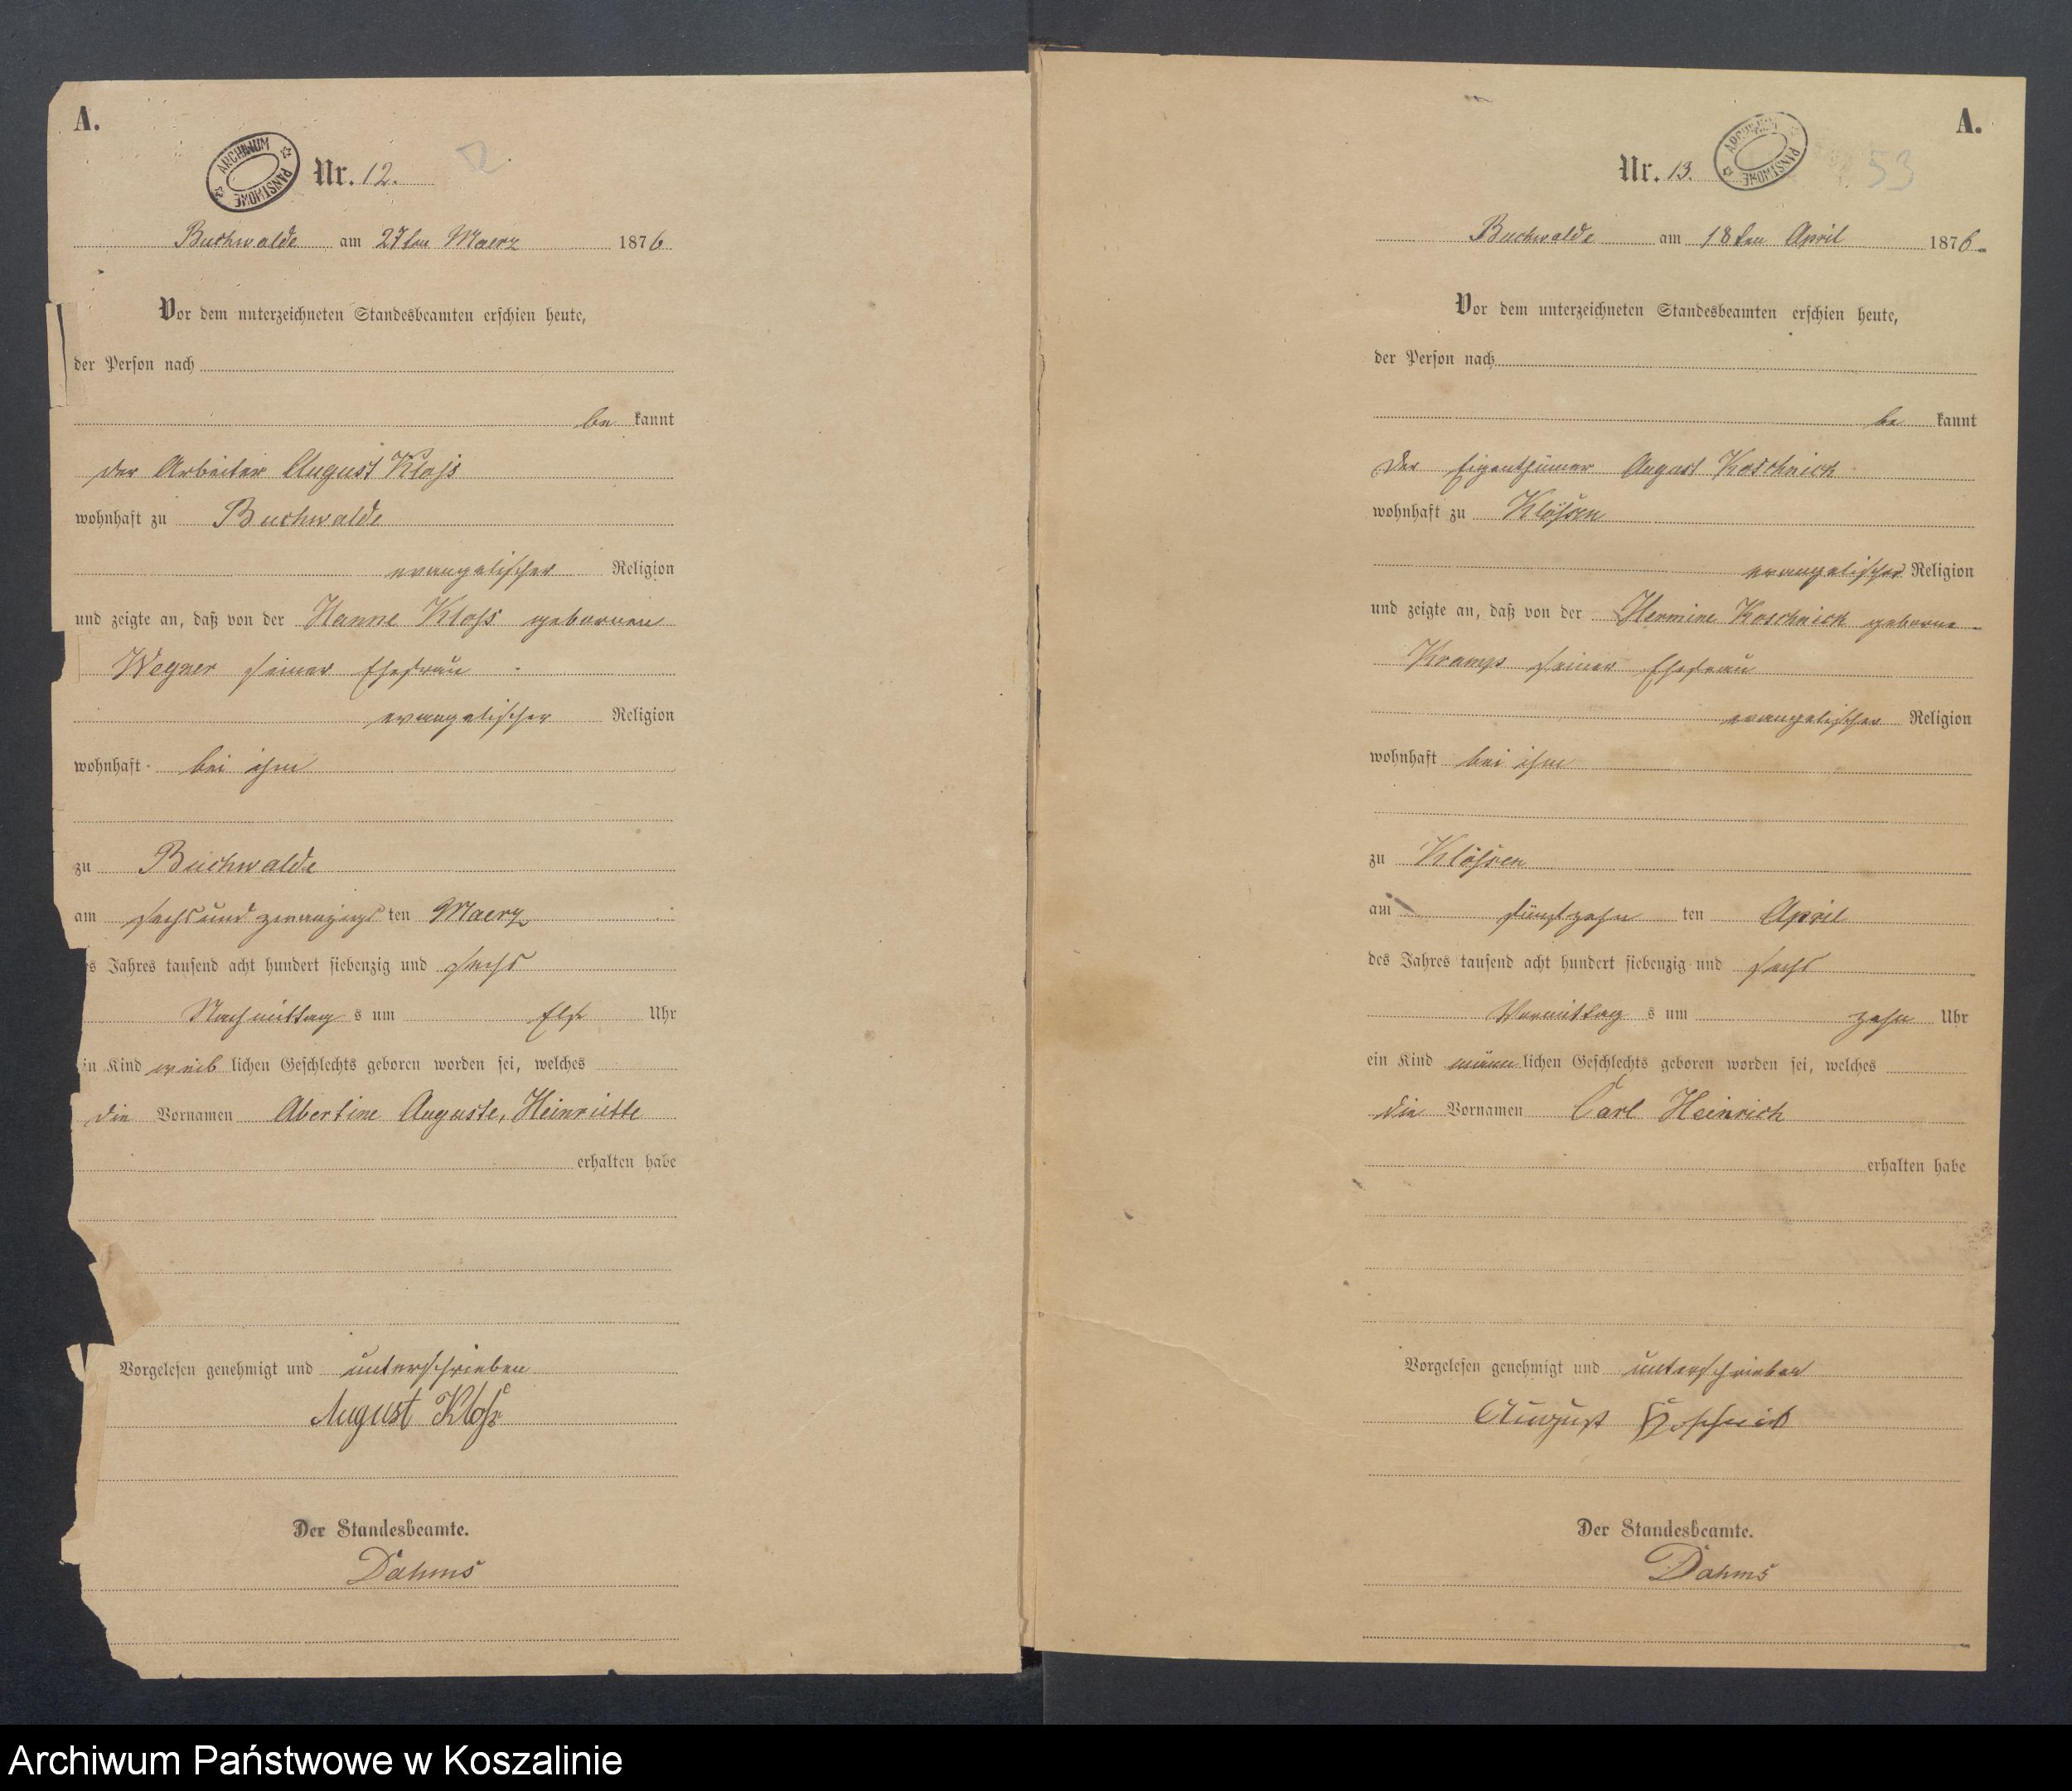 A.
ARCHIWUM PAŃSTWOWE
Nr. 12.
Buchwalde am 27ten Maerz 1876
Vor dem unterzeichneten Standesbeamten erschien heute,
der Person nach
be kannt
der Arbeiter August Kloss
wohnhaft zu Buchwalde
evangelischer Religion
und zeigte an, daß von der Hanne Kloss geborenen
Wegner seiner Ehefrau
evangelischer Religion
wohnhaft bei ihm
zu Buchwalde
am sechsundzwanzigs ten Maerz
es Jahres tausend acht hundert siebenzig und sechs
Nachmittag s um elf Uhr
in Kind weib lichen Geschlechts geboren worden sei, welches
die Vornamen Abertine Auguste, Heinriette
erhalten habe
Vorgelesen genehmigt und unterschrieben
August Kloss
Der Standesbeamte.
Dahms
A.
Nr. 13.
ARCHIWUM PAŃSTWOWE
53
Buchwalde am 18ten April 1876
Vor dem unterzeichneten Standesbeamten erschien heute,
der Person nach
be kannt
Der Eigenthümer August Koschnick
wohnhaft zu Klössen
evangelischer Religion
und zeigte an, daß von der Hermine Koschnick geborne
Kramp seiner Ehefrau
evangelischer Religion
wohnhaft bei ihm
zu Klössen
am fünfzehn ten April
des Jahres tausend acht hundert siebenzig und sechs
Vormittag s um zehn Uhr
ein Kind männ lichen Geschlechts geboren worden sei, welches
die Vornamen Carl Heinrich
erhalten habe
Vorgelesen genehmigt und unterschrieben
August Koschnick
Der Standesbeamte.
Dahms
Archiwum Państwowe w Koszalinie